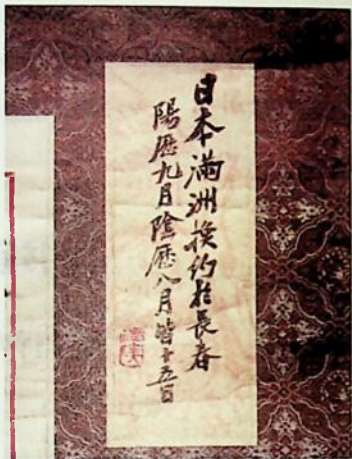 日本滿洲換約於長春
陽歷九月陰歷八月皆十五日